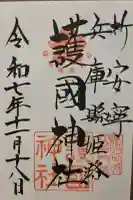 祈安寧
兵庫縣姫路
護國神社
令和七年十一月十八日